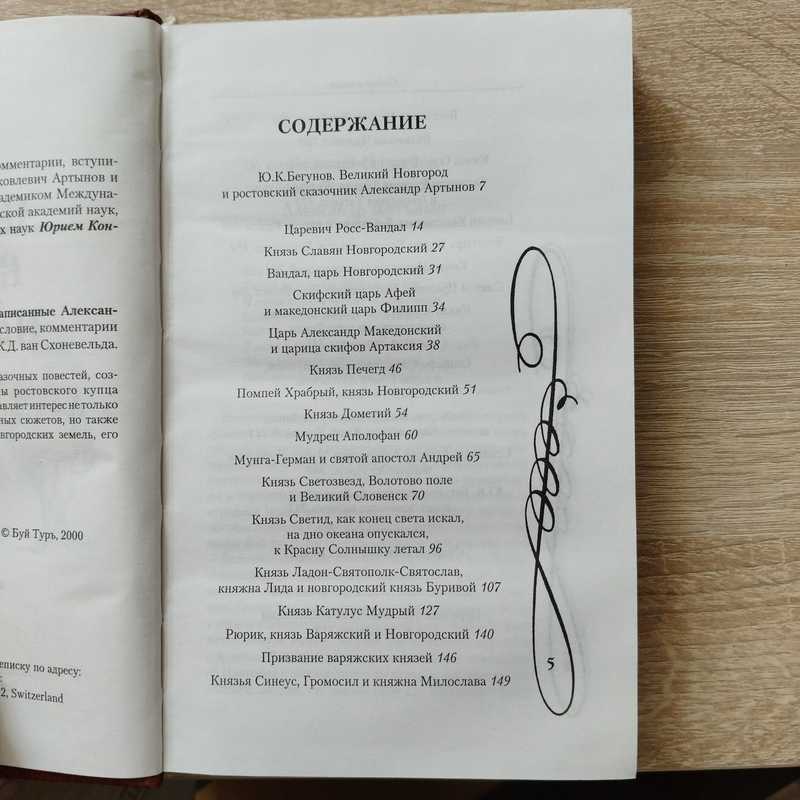 омментарии, вступи-
ковлевич Артынов и
адемиком Междуна-
ской академий наук,
х наук Юрием Кон-
аписанные Алексан-
словие, комментарии
К.Д. ван Схоневельда.
азочных повестей, соз-
ы ростовского купца
авляет интерес не только
ных сюжетов, но также
вгородских земель, его
© Буй Туръ, 2000
еписку по адресу:
2, Switzerland
СОДЕРЖАНИЕ
Ю.К.Бегунов. Великий Новгород
и ростовский сказочник Александр Артынов 7
Царевич Росс-Вандал 14
Князь Славян Новгородский 27
Вандал, царь Новгородский 31
Скифский царь Афей
и македонский царь Филипп 34
Царь Александр Македонский
и царица скифов Артаксия 38
Князь Печегд 46
Помпей Храбрый, князь Новгородский 51
Князь Дометий 54
Мудрец Аполофан 60
Мунга-Герман и святой апостол Андрей 65
Князь Светозвезд, Волотово поле
и Великий Словенск 70
Князь Светид, как конец света искал,
на дно океана опускался,
к Красну Солнышку летал 96
Князь Ладон-Святополк-Святослав,
княжна Лида и новгородский князь Буривой 107
Князь Катулус Мудрый 127
Рюрик, князь Варяжский и Новгородский 140
Призвание варяжских князей 146
Князья Синеус, Громосил и княжна Милослава 149
5